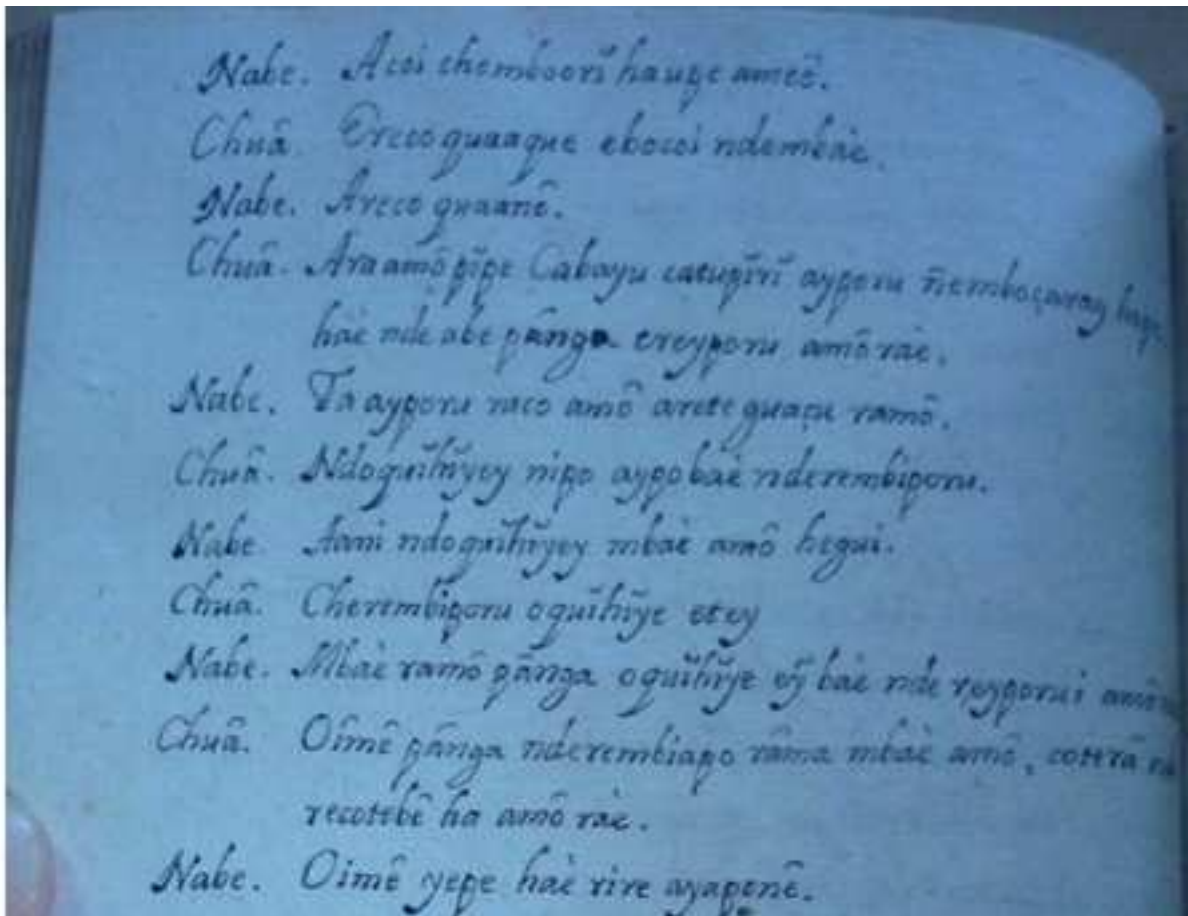 Nabe. Acoi chemboorĭ haupe ameê.
Chuâ. Ereco quaaque ebocoi ndembaè.
Nabe. Areco quaanê.
Chuâ. Ara amô pĭpe Cabayu catupĭrĭ ayporu ñemboçaray hape
haè nde abe pânga ereyporu amô raè.
Nabe. Ta ayporu raco amô arete guaçu ramô.
Chuâ. Ndoquĭhĭyey nipo aypobaè nderembiporu.
Nabe. Aani ndoquĭhĭyey mbaè amô hegui.
Chuâ. Cherembiporu oquĭhĭye etey
Nabe. Mbaè ramô pânga oquĭhĭye eỹ baè nde reyporui amô
Chuâ. Oimê pânga nderembiapo râma mbaè amô, coterâ
recotebê ha amô raè.
Nabe. Oimê yepe haè rire ayaponê.